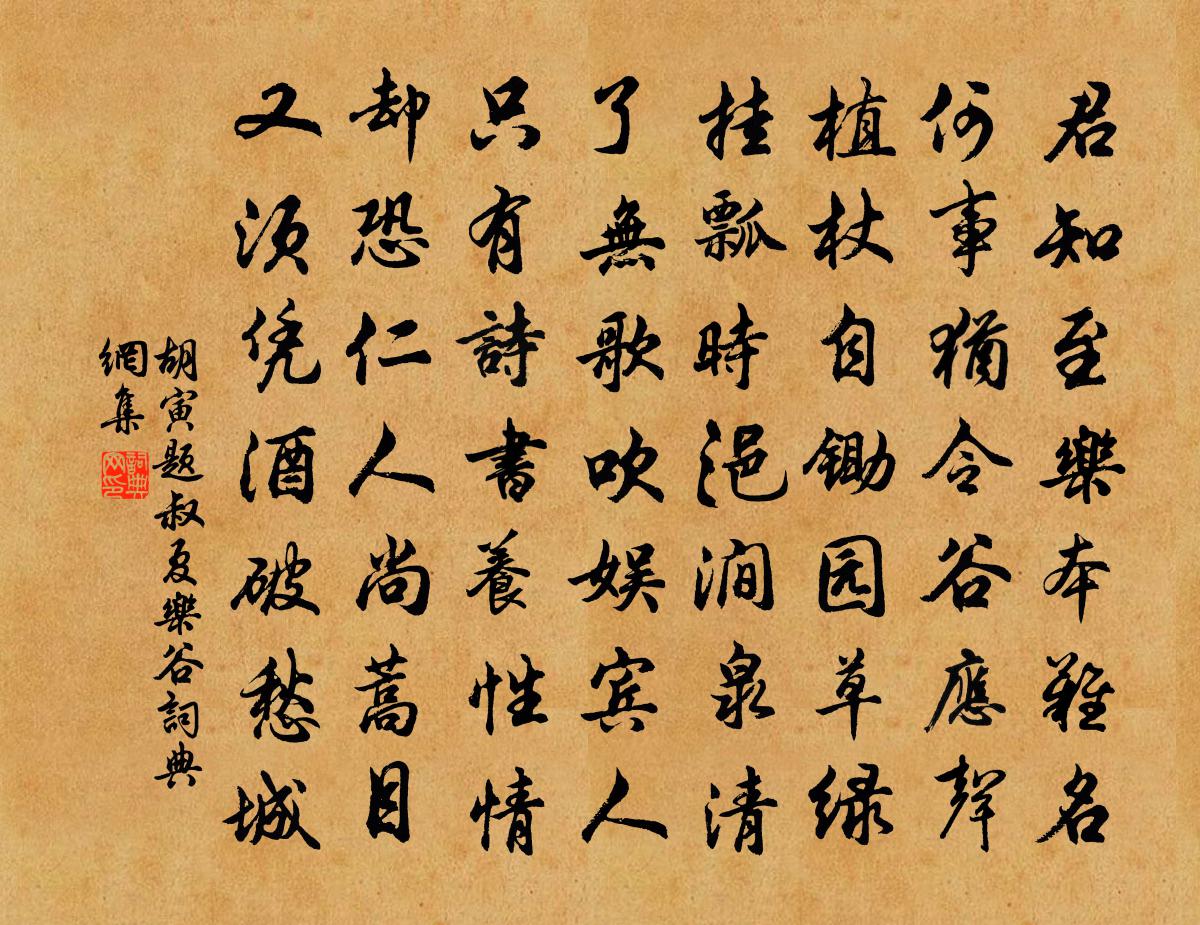 君知至樂本難名
何事猶令谷應聲
植杖自鋤园草绿
挂瓢時浥澗泉清
了無歌吹娱宾人
只有詩書養性情
却恐仁人尚蒿目
又须凭酒破愁城
胡寅题叔夏樂谷詞典
網集
詞典
网印